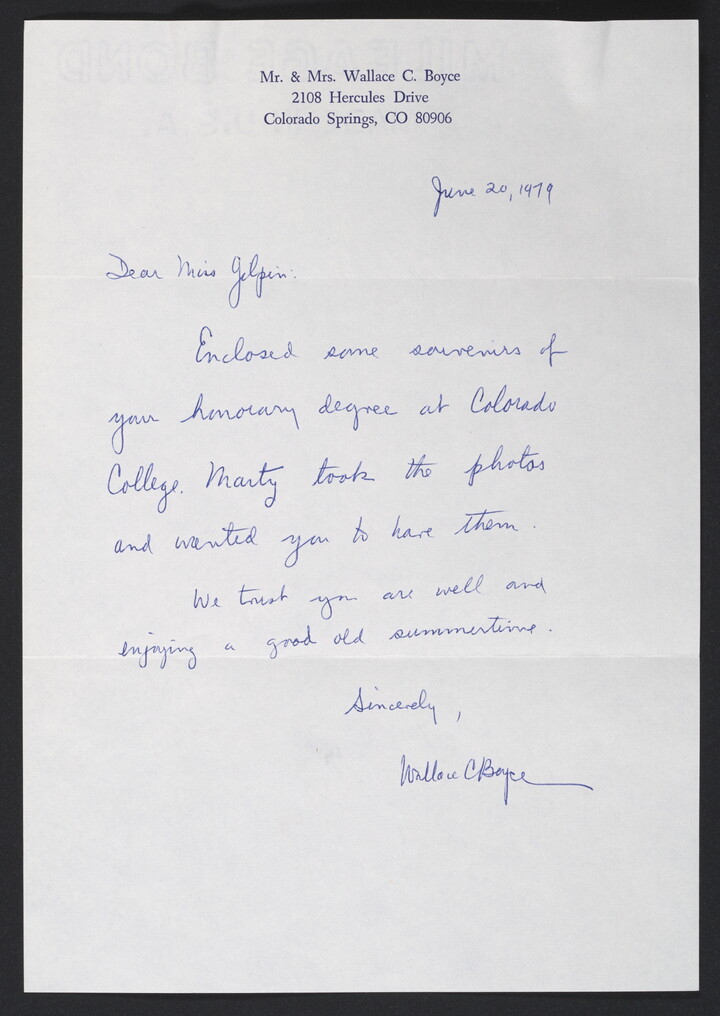 Mr. & Mrs. Wallace C. Boyce
2108 Hercules Drive
Colorado Springs, CO 80906
June 20, 1979
Dear Miss Gilpin:
Enclosed some souvenirs of
your honorary degree at Colorado
College. Marty took the photos
and wanted you to have them.
We trust you are well and
enjoying a good old summertime.
Sincerely,
Wallace C Boyce